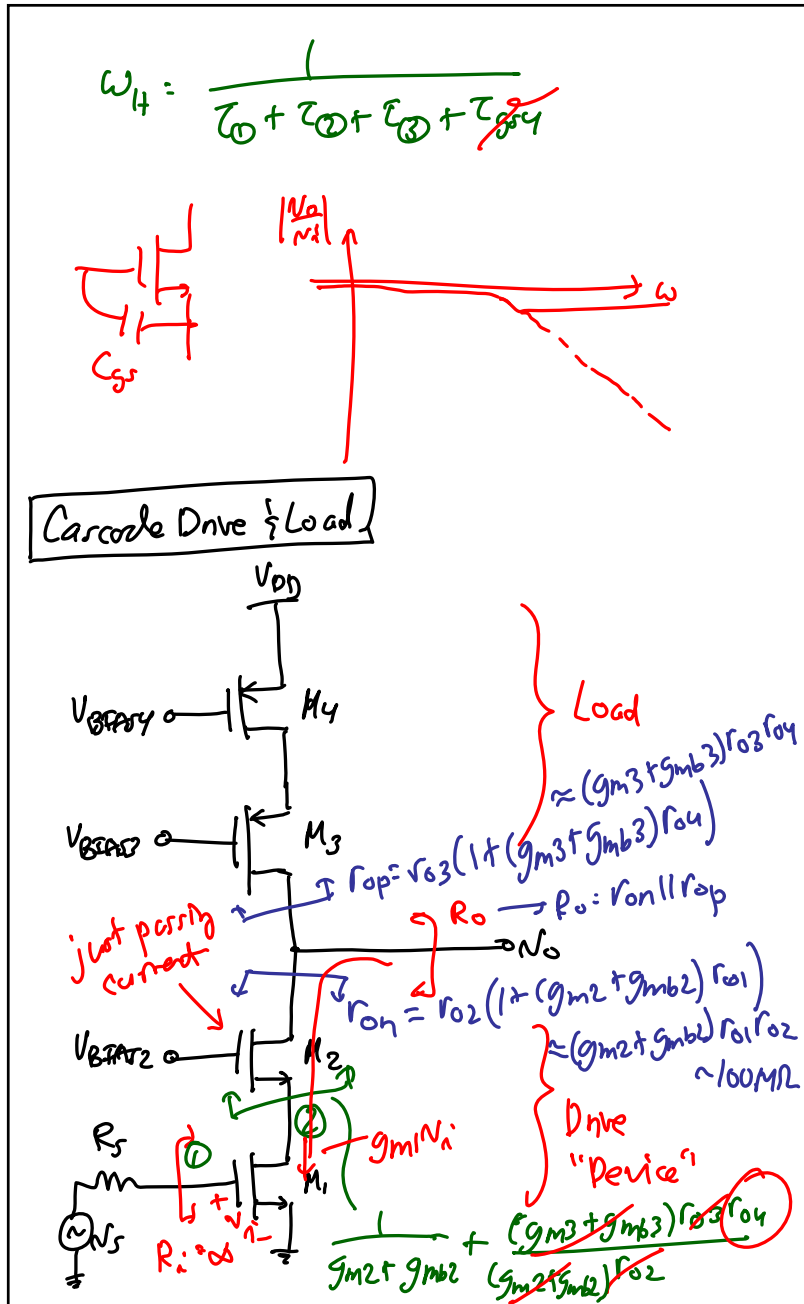 ω_H = 1 / (τ_① + τ_② + τ_③ + τ_gs4)
|v_o/v_i|
ω
C_gs
Cascode Drive & Load
V_DD
V_BIAS4
M_4
Load
≈ (g_m3 + g_mb3) r_o3 r_o4
V_BIAS3
M_3
r_op = r_o3 (1 + (g_m3 + g_mb3) r_o4)
just passing
current
R_o → R_o = r_on || r_op
v_o
r_on = r_o2 (1 + (g_m2 + g_mb2) r_o1)
V_BIAS2
M_2
≈ (g_m2 + g_mb2) r_o1 r_o2
~100MΩ
②
R_s
①
g_m1 v_i
Drive
"Device"
M_1
+ v_i -
v_s
R_i = ∞
1 / (g_m2 + g_mb2) + (g_m3 + g_mb3) r_o3 r_o4 / (g_m2 + g_mb2) r_o2